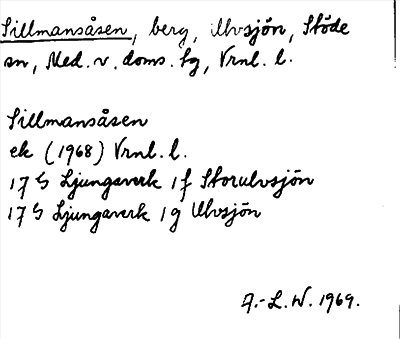 Sillmansåsen, berg, Ulvsjön, Stöde
sn, Med. v. doms. sg, Vrnl. l.
Sillmansåsen
ek (1968) Vrnl. l.
17 G Ljungaverk 1 f Storulvsjön
17 G Ljungaverk 1 g Ulvsjön
A.-L. W. 1969.